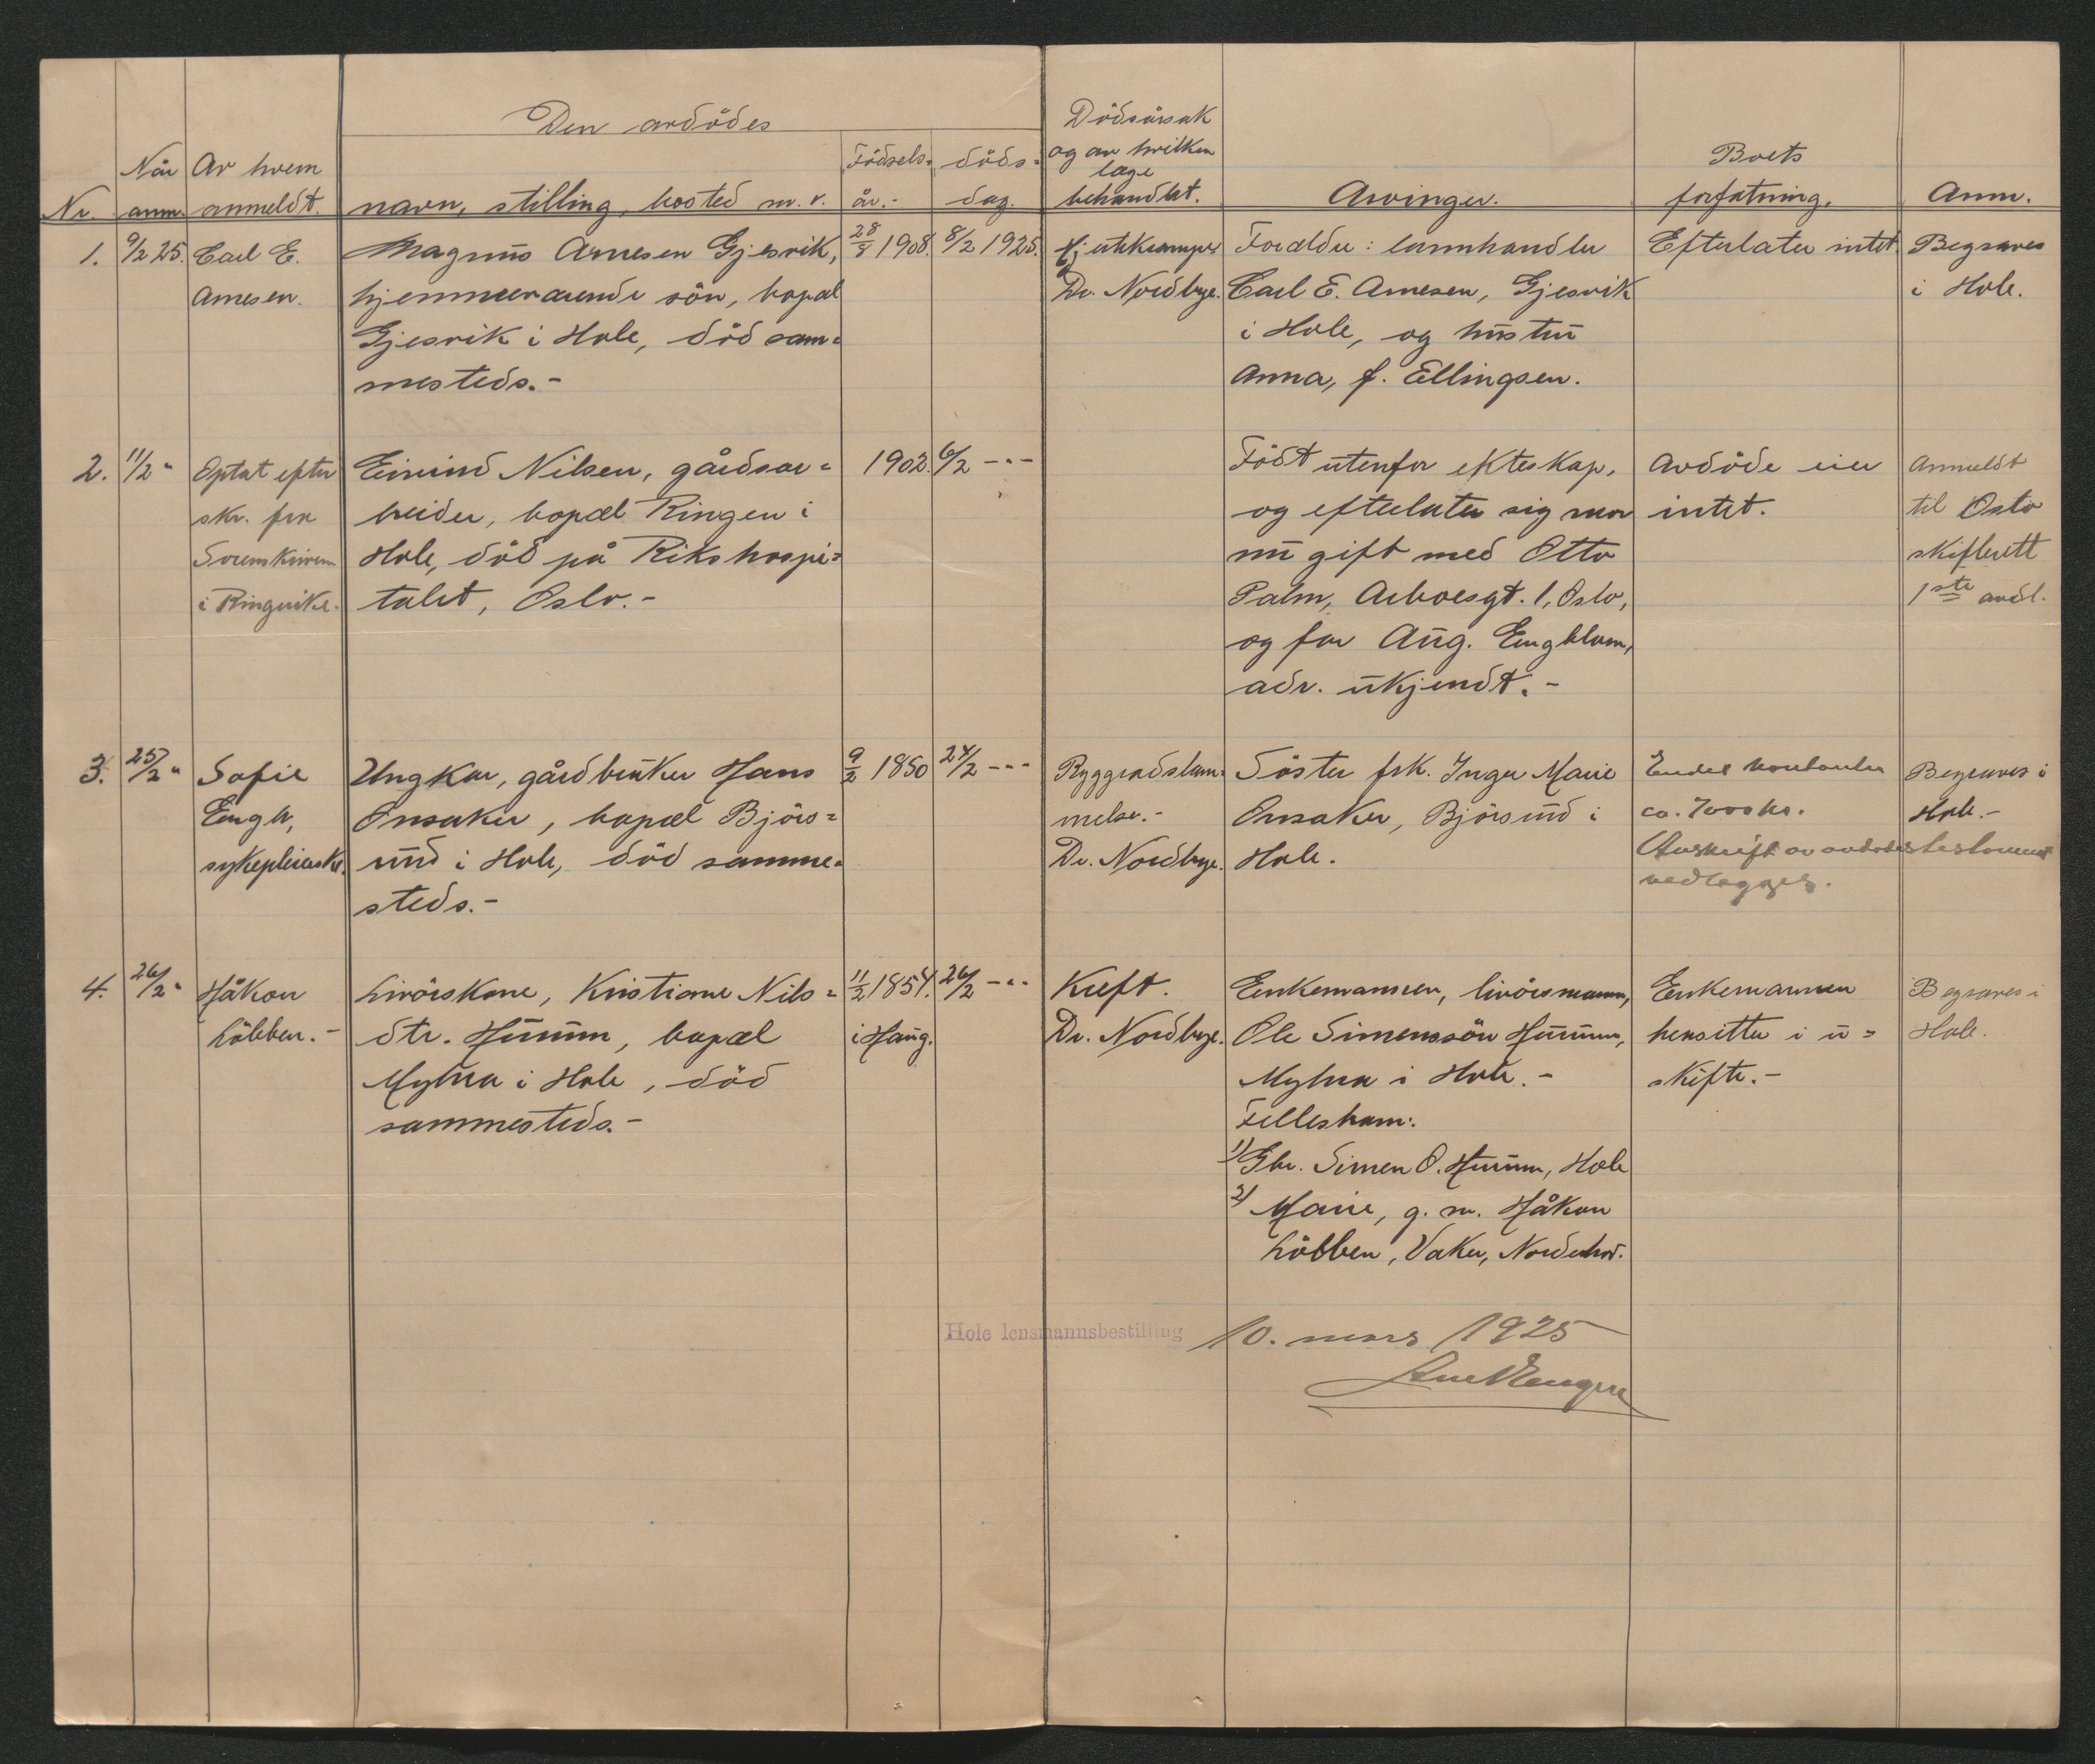 Den avdödes
Nr.
Når anm.
Av hvem anmeldt.
navn, stilling, bosted m. v.
Födsels-
år.-
döds-
dag.
Dödsårsak
og av hvilken
læge
behandlet.
Arvinger.
Boets
forfatning.
Anm.
1.
9/2 25.
Carl E.
Arnesen.
Magnus Arnesen Gjesvik,
hjemmeværende sön, bopæl
Gjesvik i Hole, död sam=
mesteds.-
28/8 1908.
8/2 1925.
Hjertekramper
Dr. Nordbye.
Foreldre: lannhandler
Carl E. Arnesen, Gjesvik
i Hole, og hustru
Anna, f. Ellingsen.
Efterlater intet.
Begraves
i Hole.
2.
11/2 "
Optat efter
skr. fra
Sorenskriveren
i Ringerike.
Eivind Nilsen, gårdsar=
beider, bopæl Ringen i
Hole, död på Rikshospi=
talet, Oslo.-
1902.
6/2 -"-
Födt utenfor ekteskap,
og efterlater sig mor
nu gift med Otto
Palm, Arboesgt. 1, Oslo,
og far Aug. Engblom,
adr. ukjendt.-
Avdöde eier
intet.
Anmeldt
til Oslo
skifterett
1ste avdl.
3.
25/2 "
Sofie
Engh,
sykepleierske.
Ungkar, gårdbruker Hans
Onsaker, bopæl Björs=
und i Hole, död samme=
steds.-
9/2 1850
24/2 -"-
Ryggradslam=
melse.-
Dr. Nordbye.
Söster frk. Inger Marie
Onsaker, Björsund i
Hole.
Endel kontanter
ca. 7000 kr.
Avskrift av avdödes testament
vedlegges.
Begraves i
Hole.-
4.
26/2 "
Håkon
Löbben.-
Livörskone, Kristiane Nils=
dtr. Hurum, bopæl
Mylna i Hole, död
sammesteds.-
11/2 1854.
i Haug.
26/2 -"-
Kreft.
Dr. Nordbye.
Enkemannen, livörsmann,
Ole Simenssön Hurum,
Mylna i Hole.-
Fellesbarn:
1) Gbr. Simen O. Hurum, Hole
2) Marie, g. m. Håkon
Löbben, Vaker, Norderhov.
Enkemannen
hensitter i u=
skifte.-
Begraves i
Hole.
Hole lensmannsbestilling 10. mars 1925